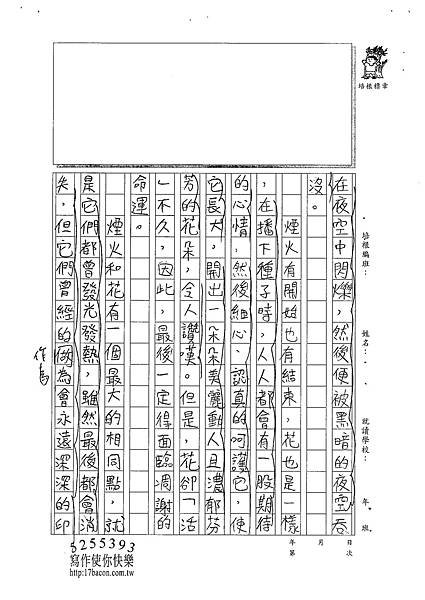 培根標章
培根編班：
姓名：
就讀學校：
年 班
年 月 日
第 次
在夜空中閃爍，然後便被黑暗的夜空吞
沒。
煙火有開始也有結束，花也是一樣
，在播下種子時，人人都會有一股期待
的心情，然後細心、認真的呵護它，使
它長大，開出一朵朵美麗動人且濃郁芬
芳的花朵，令人讚嘆。但是，花卻「活
」不久，因此，最後一定得面臨凋謝的
命運。
煙火和花有一個最大的相同點，就
是它們都曾發光發熱，雖然最後都會消
失，但它們曾經的做為會永遠深深的印
作為
5255393
寫作使你快樂
http://17bacon.com.tw